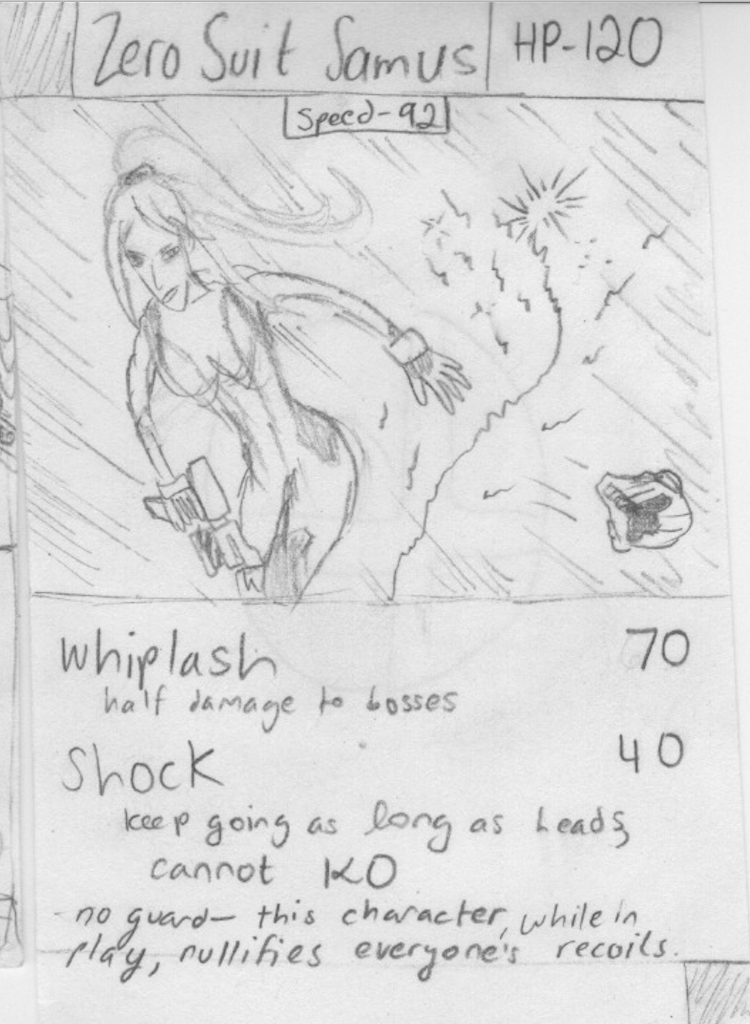 Zero Suit Samus
HP-120
Speed-92
Whiplash 70
half damage to bosses
Shock 40
keep going as long as heads
cannot KO
no guard- this character, while in
play, nullifies everyone's recoils.